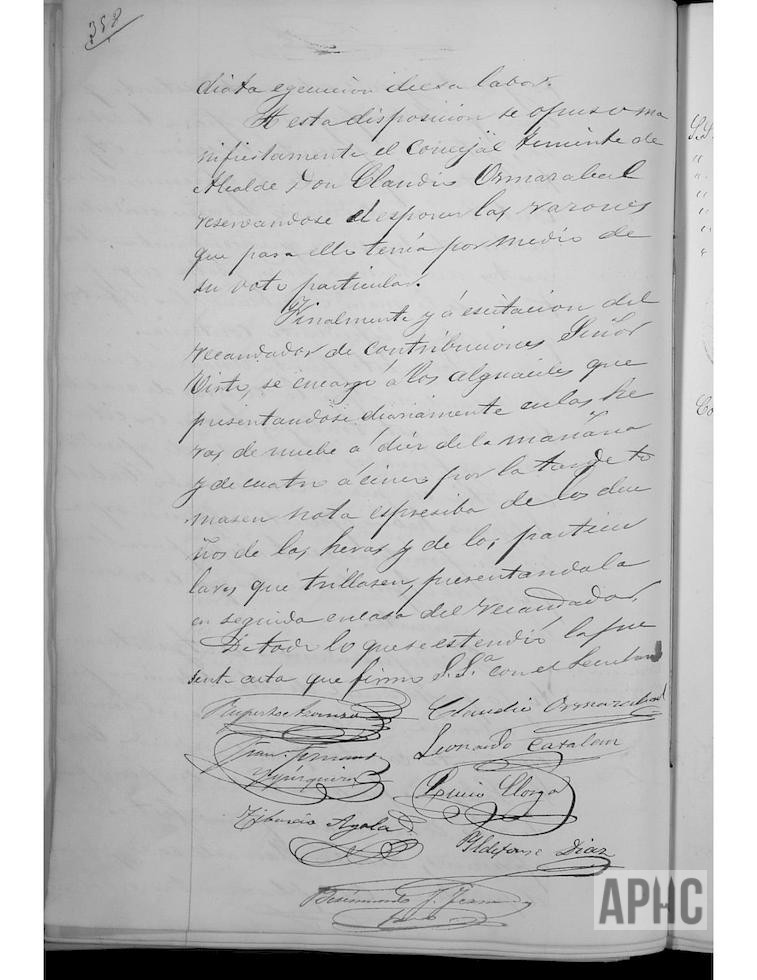 358
diata egecucion de esa labor.
A esta disposicion se opuso ma
nifiestamente el Concejal teniente de
Alcalde Don Claudio Ormazabal
reservandose el esponer las razones
que para ello tenia por medio de
su voto particular.
Finalmente y á escitacion del
recaudador de contribuciones Señor
se encargó á los alguaciles que
presentandose diariamente en las he
ras de nueve á diez de la mañana
y de cuatro á cinco por la tarde to
masen nota espresiba de los due
ños de las heras y de los particu
lares que trillasen, presentandola
en seguida en casa del recaudador.
De todo lo que se estendió la pre
sente acta que firma S.Sª con el
Ruperto
Claudio Ormazabal
Leonardo Catalan
Lucio Llorza
Tiburcio Ayala
Yldefonso Diaz
APHC